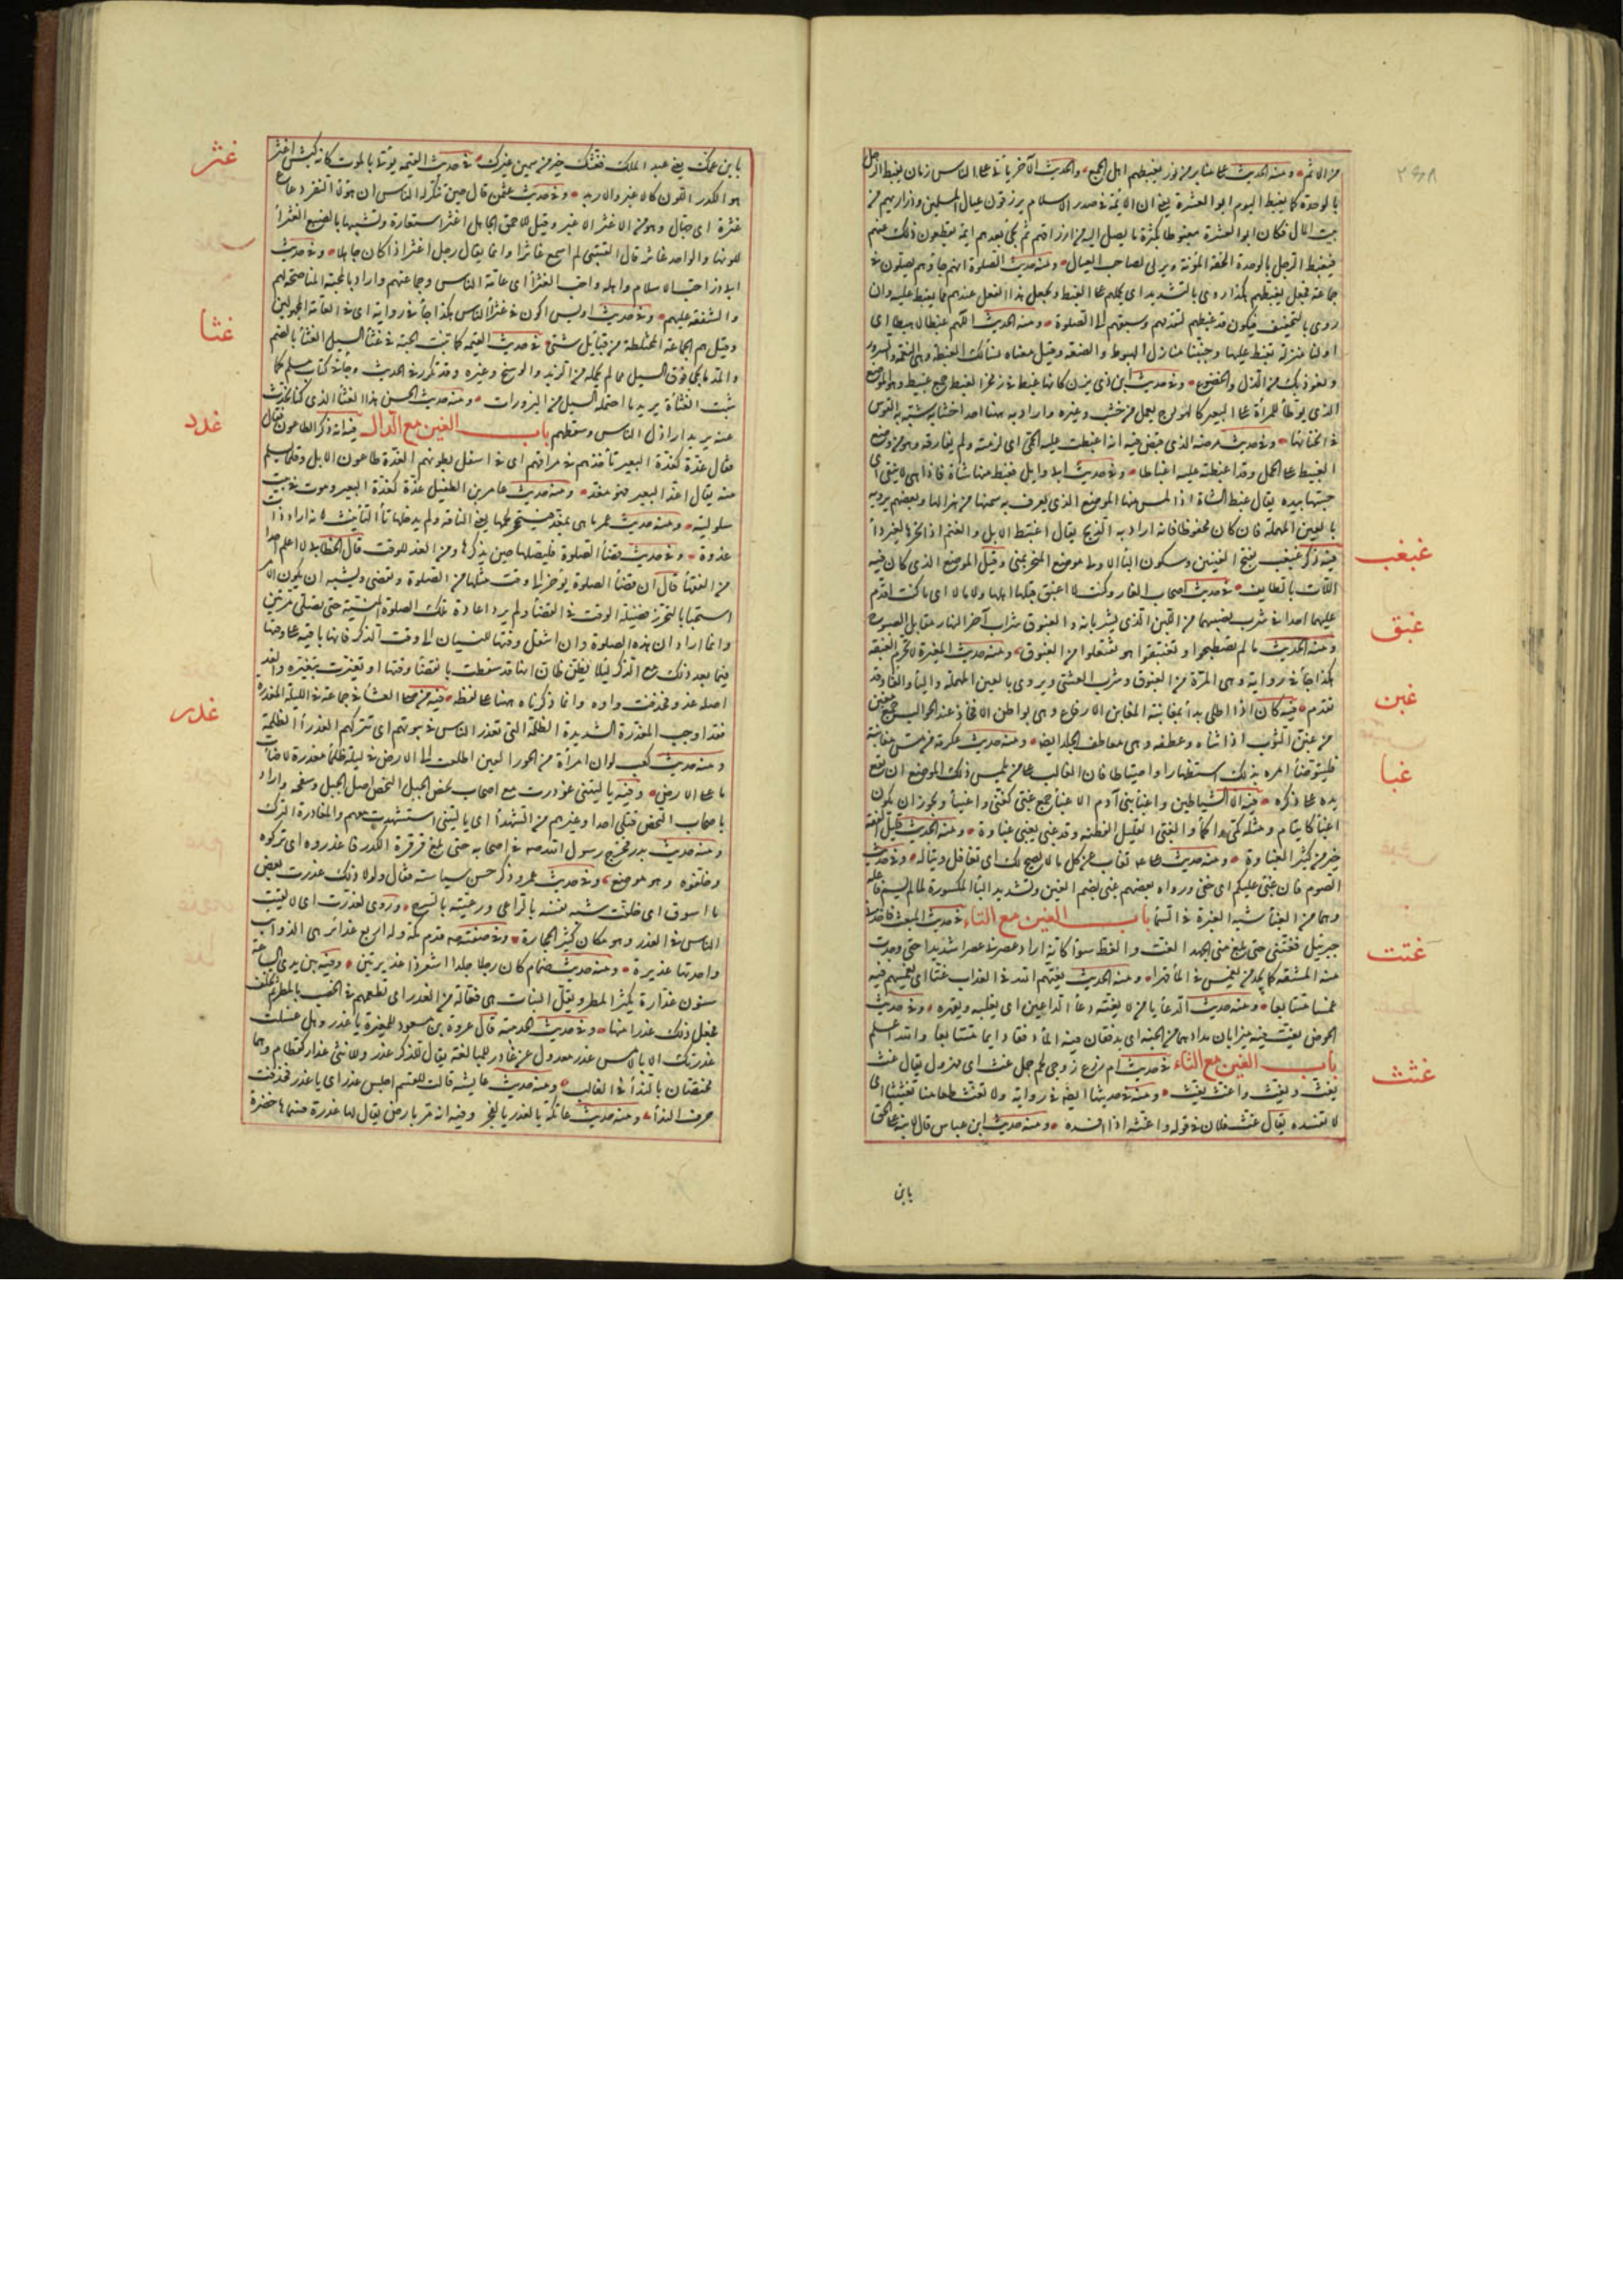 ٢٩٨
من الاثم ومنه الحديث على منابر من نور يغبطهم اهل الجمع والحديث الآخر يأتي على الناس زمان يغبط الرجل
بالوحدة كما يغبط اليوم ابو العشرة يعني ان الائمة في صدر الاسلام يرزقون عيال المسلمين وذراريهم من
بيت المال فكان ابو العشرة مغبوطا بكثرة ما يصل اليه من ارزاقهم ثم يجئ بعدهم ائمة يقطعون ذلك عنهم
فيغبط الرجل بالوحدة لخفة المؤنة ويرثى لصاحب العيال ومنه حديث الصلوة انهم جاؤهم يصلون في
جماعة فجعل يغبطهم هكذا روى بالتشديد اى يحملهم على الغبط ويجعل هذا الفعل عندهم مما يغبط عليه وان
روى بالتخفيف فيكون قد غبطهم لتقدمهم وسبقهم الى الصلوة ومنه الحديث اللهم غبطا لا هبطا اى
اولنا منزلة نغبط عليها وجنبنا منازل الهبوط والضعة وقيل معناه نسألك الغبطة وهي النعمة والسرور
ونعوذ بك من الذل والخضوع وفي حديث ابن ذي يزن كانها غبط في زمخر الغبط جمع غبيط وهو الموضع
الذي يوطأ للمرأة على البعير كالهودج يعمل من خشب وغيره واراد به ههنا احد اخشابه شبه به القوس
في انحنائها وفي حديث مرضه الذي قبض فيه انه اغبطت عليه الحمى اى لزمته ولم تفارقه وهو من وضع
الغبيط على الجمل وقد اغبطته عليه اغباطا وفي حديث ابي وايل فغبط منها شاة فاذا هي لا تنقى اى
جسها بيده يقال غبط الشاة اذا لمس منها الموضع الذي يعرف به سمنها من هزالها وبعضهم يرويه
بالعين المهملة فان كان محفوظا فانه اراد به الذبح يقال اعتبط الابل والغنم اذا نحرها لغير داء
غبغب
فيه ذكر غبغب بفتح الغينين وسكون الباء الاولى موضع المنحر بمنى وقيل الموضع الذي كان فيه
اللات بالطايف في حديث اصحاب الغار وكنت لا اغبق قبلهما اهلا ولا مالا اى ما كنت اقدم
غبق
عليهما احدا في شرب نصيبهما من اللبن الذي يشربانه والغبوق شراب آخر النهار مقابل الصبوح
ومنه الحديث ما لم تصطبحوا او تغتبقوا هو تفتعلوا من الغبوق ومنه حديث المغيرة لا تحرم الغبقة
هكذا جاء في رواية وهي المرة من الغبوق وشرب العشى ويروى بالعين المهملة والياء والفاء وقد
غبن
تقدم فيه كان اذا اطلى بدأ بمغابنه المغابن الارفاغ وهي بواطن الافخاذ عند الحوالب جمع مغبن
من غبن الثوب اذا ثناه وعطفه وهي معاطف الجلد ايضا ومنه حديث عكرمة من مس مغابنه
فليتوضأ امره بذلك استظهارا واحتياطا فان الغالب على من يلمس ذلك الموضع ان تقع
غبا
يده على ذكره فيه الا الشياطين واغبياء بني آدم الاغبياء جمع غبي كغني واغنياء ويجوز ان يكون
اغباء كايتام ومثله كمي واكماء والغبي القليل الفطنة وقد غبي يغبى غباوة ومنه الحديث قليل الفقه
خير من كثير الغباوة ومنه حديث على تغاب عن كل ما لا يصح لك اى تغافل وتباله وفي حديث
الصوم فان غبي عليكم اى خفي ورواه بعضهم غبي بضم الغين وتشديد الباء المكسورة لما لم يسم فاعله
وهما من الغباء شبه الغبرة في السماء باب الغين مع التاء في حديث المبعث فاخذني
غتت
جبرئيل فغتني حتى بلغ مني الجهد الغت والغط سواء كانه اراد عصرني عصرا شديدا حتى وجدت
منه المشقة كما يجد من يغمس في الماء قهرا ومنه الحديث يغتهم الله في العذاب غتا اى يغمسهم فيه
غمسا متتابعا ومنه حديث الدعاء يا من لا يغته دعاء الداعين اى يغلبه ويقهره وفي حديث
الحوض يغت فيه ميزابان مدادهما من الجنة اى يدفقان فيه الماء دفقا دايما متتابعا والله اعلم
غثث
باب الغين مع الثاء في حديث ام زرع زوجي لحم جمل غث اى مهزول يقال غث
يغث ويغث واغث يغث ومنه في حديثها ايضا في رواية ولا تغث طعامنا تغثيثا اى
لا تفسده يقال غث فلان في قوله واغثه اذا افسده ومنه حديث ابن عباس قال لابنه على الحق
بابن
غثر
بابن عمك يعني عبد الملك فغثك خير من سمين غيرك في حديث القيمة يؤتى بالموت كانه كبش اغثر
هو الكدر اللون كالاغبر والاربد وفي حديث عثمن قال حين تنكر له الناس ان هؤلاء النفر رعاع
غثرة اى جهال وهو من الاغثر الاغبر وقيل للاحمق الجاهل اغثر استعارة وتشبيها بالضبع الغثراء
للونها والواحد غاثر قال القتيبي لم اسمع غاثرا وانما يقال رجل اغثر اذا كان جاهلا وفي حديث
ابي ذر احب الاسلام واهله واحب الغثراء اى عامة الناس وجماعتهم واراد بالمحبة المناصحة لهم
والشفقة عليهم وفي حديث اويس اكون في غثراء الناس هكذا جاء في رواية اى في العامة المجهولين
غثا
وقيل هم الجماعة المختلطة من قبايل شتى في حديث القيمة كما تنبت الحبة في غثاء السيل الغثاء بالضم
والمد ما يجئ فوق السيل مما يحمله من الزبد والوسخ وغيره وقد تكرر في الحديث وجاء في كتاب مسلم كما
تنبت الغثاءة يريد ما احتمله السيل من البزورات ومنه حديث الحسن هذا الغثاء الذي كنا نحدث
غدد
عنه يريد اراذل الناس وسقطهم باب الغين مع الدال فيه انه ذكر الطاعون فقال
فقال غدة كغدة البعير تأخذهم في مراقهم اى في اسفل بطونهم الغدة طاعون الابل وقلما تسلم
منه يقال اغد البعير فهو مغد ومنه حديث عامر بن الطفيل غدة كغدة البعير وموت في بيت
سلولية ومنه حديث عمر ما هي بمغد فيستحجى لحمها يعني الناقة ولم يدخلها تاء التأنيث لانه اراد ذات
غدوة وفي حديث قضاء الصلوة فليصلها حين يذكرها ومن الغد للوقت قال الخطابي لا اعلم احدا
من الفقهاء قال ان قضاء الصلوة يؤخر الى وقت مثلها من الصلوة ويقضى ويشبه ان يكون الامر
استحبابا ليحرز فضيلة الوقت في القضاء ولم يرد اعادة تلك الصلوة المنسية حتى تصلى مرتين
وانما اراد ان هذه الصلوة وان انتقل وقتها للنسيان الى وقت الذكر فانها باقية على وقتها
فيما بعد ذلك مع الذكر لئلا يظن ظان انها قد سقطت بانقضاء وقتها او تغيرت بتغيره والغد
غدر
اصله غدو فحذفت واوه وانما ذكرناه ههنا على لفظه فيه من صلى العشاء في جماعة في الليلة المغدرة
فقد اوجب المغدرة الشديدة الظلمة التي تغدر الناس في بيوتهم اى تتركهم الغدراء الظلمة
ومنه حديث كعب لو ان امرأة من الحور العين اطلعت الى الارض في ليلة ظلماء مغدرة لاضاءت
ما على الارض وفيه يا ليتني غودرت مع اصحاب نحص الجبل النحص اصل الجبل وسفحه واراد
باصحاب النحص قتلى احد او غيرهم من الشهداء اى يا ليتني استشهدت معهم والمغادرة الترك
ومنه حديث بدر فخرج رسول الله صه في اصحابه حتى بلغ قرقرة الكدر فاغدروه اى تركوه
وخلفوه وهو موضع وفي حديث عمر وذكر حسن سياسته فقال ولولا ذلك لاغدرت بعض
ما اسوق اى خلفت شبه نفسه بالراعي ورعيته بالسرح وروى لغدرت اى لالقيت
الناس في الغدر وهو مكان كثير الحجارة وفي صفته صه قدم مكة وله اربع غدائر هي الذوائب
واحدتها غديرة ومنه حديث ضمام كان رجلا جلدا اشعر ذا غديرتين وفيه بين يدي الساعة
سنون غدارة يكثر المطر ويقل النبات هي فعالة من الغدر اى تطمعهم في الخصب بالمطر ثم تخلف
فجعل ذلك غدرا منها وفي حديث الحديبية قال عروة بن مسعود للمغيرة يا غدر وهل غسلت
غدرتك الا بالامس غدر معدول عن غادر للمبالغة يقال للذكر غدر وللانثى غدار كقطام وهما
مختصان بالنداء في الغالب ومنه حديث عايشه قالت للقسم اجلس غدر اى يا غدر فحذفت
حرف النداء ومنه حديث عاتكة يا لغدر يا لفجر وفيه انه مر بارض يقال لها غدرة فسماها خضرة